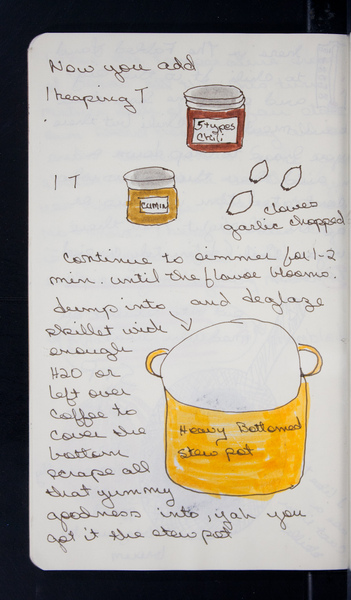 Now you add
1 heaping T
5 types of Chili
1 T
CUMIN
cloves
garlic chopped
continue to simmer for 1-2
min. until the flavor blooms.
dump into and deglaze
skillet with
enough
H2O or
left over
coffee to
cover the
bottom
scrape all
that yummy
goodness into, yah you
got it the stew pot
Heavy Bottomed
stew pot